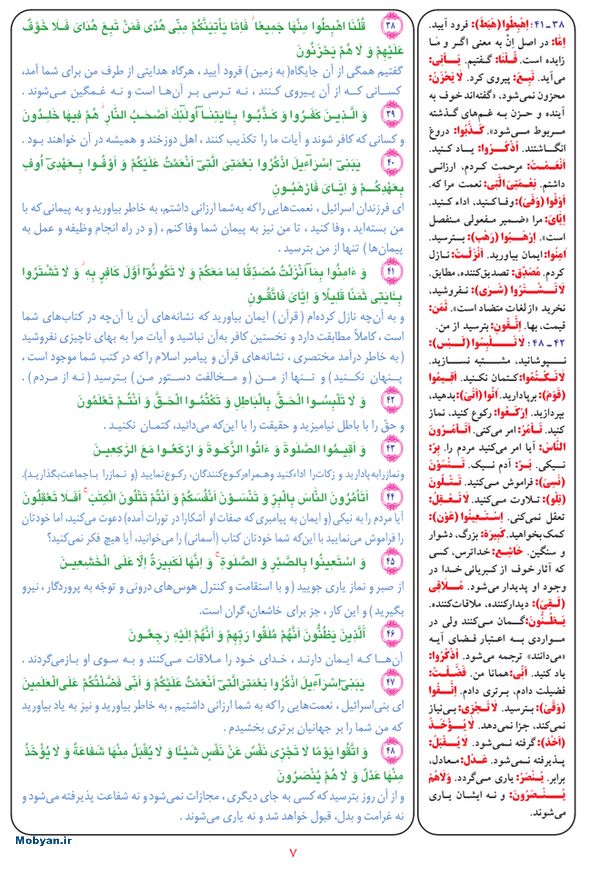 ۳۸
قُلْنَا اهْبِطُوا مِنْهَا جَمِيعًا ۖ فَاِمَّا يَأْتِيَنَّكُمْ مِنّى هُدًى فَمَنْ تَبِعَ هُدَاىَ فَلَا خَوْفٌ
عَلَيْهِمْ وَ لَا هُمْ يَحْزَنُونَ
گفتیم همگی از آن جایگاه(به زمین) فرود آیید ، هرگاه هدایتی از طرف من برای شما آمد،
کسانی که از آن پیروی کنند ، نه ترسی بر آن‌ها است و نه غمگین می‌شوند .
۳۹
وَ الَّذينَ كَفَرُوا وَ كَذَّبُوا بِـَٔايَـٰتِنـَآ اُولَـٰٓئِكَ اَصْحَـٰبُ النّارِ ۖ هُمْ فيهَا خَـٰلِدُونَ
و کسانی که کافر شوند و آیات ما را تکذیب کنند ، اهل دوزخند و همیشه در آن خواهند بود .
۴۰
يَـٰبَنىٓ اِسْرَآءيلَ اذْكُرُوا نِعْمَتِىَ الَّتىٓ اَنْعَمْتُ عَلَيْكُمْ وَ اَوْفُوا بِـعَهْدىٓ اُوفِ
بِعَهْدِكُـمْ وَ اِيّـَاىَ فَارْهَـبُـونِ
ای فرزندان اسرائیل ، نعمت‌هایی را که به‌شما ارزانی داشتم، به خاطر بیاورید و به پیمانی که با
من بسته‌اید ، وفا کنید ، تا من نیز به پیمان شما وفا کنم ، (و در راه انجام وظیفه و عمل به
پیمان‌ها) تنها از من بترسید .
۴۱
وَ ءَامِنُوا بِمـَآ اَنْزَلْتُ مُصَدِّقًا لِمَا مَعَكُمْ وَ لَا تَكُونُوٓا اَوَّلَ كَافِرٍ بِهِ ۖ وَ لَا تَشْتَرُوا
بِـَٔايَـٰتى ثَمَنًا قَليلًا وَ اِيّاىَ فَاتَّقُـونِ
و به آن‌چه نازل کرده‌ام ( قرآن ) ایمان بیاورید که نشانه‌های آن با آن‌چه در کتاب‌های شما
است ، کاملاً مطابقت دارد و نخستین کافر به‌آن نباشید و آیات مرا به بهای ناچیزی نفروشید
( به خاطر درآمد مختصری ، نشانه‌های قرآن و پیامبر اسلام را که در کتب شما موجود است ،
پنهان نکـنید ) و تنـها از مـن ( و مـخالفت دستـور مـن ) بـترسید ( نـه از مـردم ) .
۴۲
وَ لَا تَلْبِسُـوا الْحَقَّ بِالْبَاطِلِ وَ تَكْتُمُوا الْحَقَّ وَ اَنْتُمْ تَعْلَمُونَ
و حق را با باطل نیامیزید و حقیقت را با این‌که می‌دانید، کتمان نکنید .
۴۳
وَ اَقيمُوا الصَّلَوٰةَ وَ ءَاتُوا الزَّكَـوٰةَ وَ ارْكَعُوا مَعَ الرَّٰكِعينَ
و نماز را به پا دارید و زکات را ادا کنید و همراه رکوع‌کنندگان، رکوع نمایید (و نماز را با جماعت بگذارید).
۴۴
اَتَأْمُرُونَ النَّاسَ بِالْبِرِّ وَ تَنْسَـوْنَ اَنْفُسَكُمْ وَ اَنْتُمْ تَتْلُونَ الْكِتٰبَ ۚ اَفَلَا تَعْقِلُونَ
آیا مردم را به نیکی (و ایمان به پیامبری که صفات او آشکارا در تورات آمده) دعوت می‌کنید، اما خودتان
را فراموش می‌نمایید با این‌که شما خودتان کتاب (آسمانی) را می‌خوانید، آیا هیچ فکر نمی‌کنید؟
۴۵
وَ اسْتَعينُوا بِالصَّـبْرِ وَ الصَّلَوٰةِ ۚ وَ اِنَّهَا لَكَبيرَةٌ اِلَّا عَلَى الْخَـٰشِعينَ
از صبر و نماز یاری جویید ( و با استقامت و کنترل هوس‌های درونی و توجّه به پروردگار ، نیرو
بگیرید ) و این کار ، جز برای خاشعان، گران است .
۴۶
اَلَّذينَ يَظُنُّونَ اَنَّهُمْ مُلَـٰقُوا رَبِّهِمْ وَ اَنَّهُمْ اِلَيْهِ رَٰجِعُونَ
آن‌هـا کـه ایمـان دارنـد ، خـدای خـود را ملاقـات می‌کننـد و به سوی او بازمی‌گردند .
۴۷
يَـٰبَنىٓ اِسْرَآءيلَ اذْكُرُوا نِعْمَتِىَ الَّتىٓ اَنْعَمْتُ عَلَيْكُمْ وَ اَنّى فَضَّلْتُكُمْ عَلَى الْعَـٰلَمينَ
ای بنی‌اسرائیل ، نعمت‌هایی را که به شما ارزانی داشتیم ، به خاطر بیاورید و نیز به یاد بیاورید
که من شما را بر جهانیان برتری بخشیدم .
۴۸
وَ اتَّقُوا يَوْمًا لَا تَجْزى نَفْسٌ عَنْ نَفْسٍ شَيْـًٔا وَ لَا يُقْبَلُ مِنْهَا شَفَاعَةٌ وَ لَا يُؤْخَذُ
مِنْهَا عَدْلٌ وَ لَا هُمْ يُنْصَرُونَ
و از آن روز بترسید که کسی به جای دیگری ، مجازات نمی‌شود و نه شفاعت پذیرفته می‌شود و
نه غرامت و بدل، قبول خواهد شد و نه یاری می‌شوند .
۳۸-۴۱: اِهْبِطُوا (هَبَطَ): فرود آیید.
اِمّا: در اصل اِنْ به معنی اگر و ما
زایده است. قُـلْنَا: گفتیم. یَـأْتِی:
می‌آید. تَـبِعَ: پیروی کرد. لایَـحْزَنُ:
محزون نمی‌شود، «گفته‌اند خوف به
آینده و حزن به غم‌های گذشته
مربوط می‌شود». کَـذَّبُوا: دروغ
انگـاشتند. اُذْکُـرُوا: یـاد کـنید.
اَنْعَمْتُ: مرحمت کردم، ارزانی
داشتم. نِعْمَتِیَ الَّتِی: نعمت مرا که.
اَوْفُوا (وَفَیَ): وفاکنید، اداء کنید.
اِیّایَ: مرا «ضمیر مفعولی منفصل
است». اِرْهَـبُوا (رَهَبَ): بـترسید.
آمِنُوا: ایمان بیاورید. اَنْزَلْتُ: نازل
کردم. مُصَدِّق: تصدیق‌کننده، مطابق.
لاتَـشْتَرُوا (شَرَیَ): نـفروشید،
نخرید «از لغات متضاد است». ثَمَن:
قیمت، بها. اِتَّقُونِ: بترسید از من.
۴۲-۴۸: لا تَـلْبِسُوا (لَبَسَ):
نـپوشانید، مشـتبه نسـازید.
لاتَکْتُمُوا: کتمان نکنید. اَقیمُوا
(قَوَمَ): برپادارید. اتُوا (اَتَیَ): بدهید،
بپردازید. اِرْکَعُوا: رکوع کنید، نماز
کنید. تَـأْمُرُ: امر می‌کنی. اَتَأْمُرُونَ
النّاسَ: آیا امر می‌کنید مردم را. بِرّ:
نیکی. بَـرّ: آدم نـیک. تَـنْسَوْنَ
(نَسِیَ): فراموش می‌کنید. تَـتْلُونَ
(تَلَوَ): تـلاوت می‌کنید. لاتَـعْقِلُ:
تعقل نمی‌کنی. اِسْتَعینُوا (عَوَنَ):
کمک بخواهید. کَبیرَة: بزرگ، دشوار
و سنگین. خاشِع: خداترس، کسی
که آثار خوف از کبریائی خدا در
وجود او پدیدار می‌شود. مُـلاقِی
(لَـقِیَ): دیدارکننده، ملاقات‌کننده.
یَظُنُّونَ: گـمان می‌کنند ولی در
مواردی به اعتبار فضای آیه
«می‌دانند» ترجمه می‌شود. اُذْکُرُوا:
یاد کنید. اَنّی: همانا من. فَضَّلْتُ:
فضیلت دادم، برتری دادم. اِتَّقُوا
(وَقَیَ): بترسید. لاتَجْزِی: بی‌نیاز
نمی‌کند، جزا نمی‌دهد. لا یُـؤْخَذُ
(اَخَذَ): گرفته نمی‌شود. لا یُـقْبَلُ:
پذیرفته نمی‌شود. عَدْل: معادل،
برابر. یُنْصَرُ: یاری می‌گردد. وَلاهُمْ
یُـنْصَرُونَ: و نه ایشان یاری
می‌شوند.
Mobyan.ir
۷